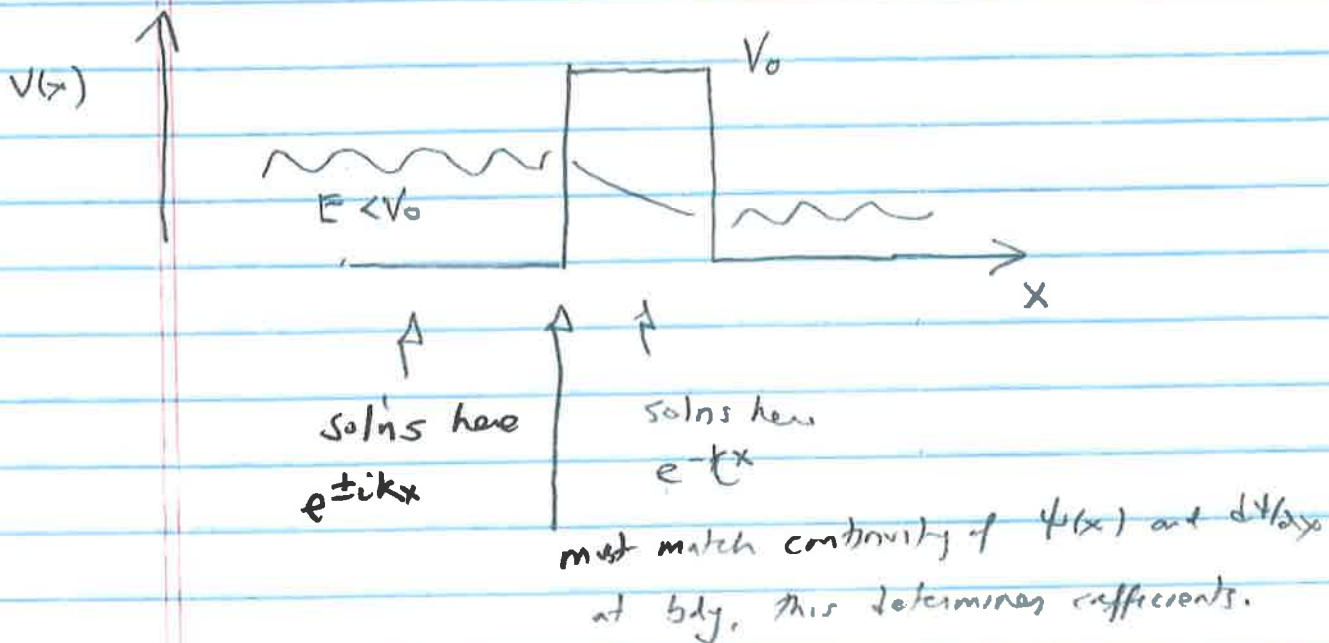 V(x)
V₀
E < V₀
x
sol'ns here
e^±ikx
solns here
e^-kx
must match continuity of ψ(x) and dψ/dx
at bdy, this determines coefficients.